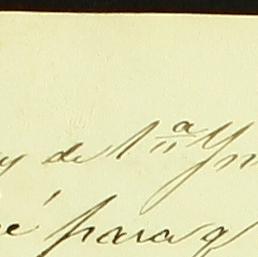 y de 1ª Yn
é para q